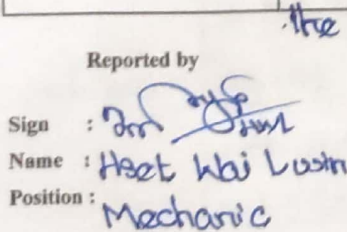 the
Reported by
Sign :
Name : Htet Wai Lwin
Position :
Mechanic